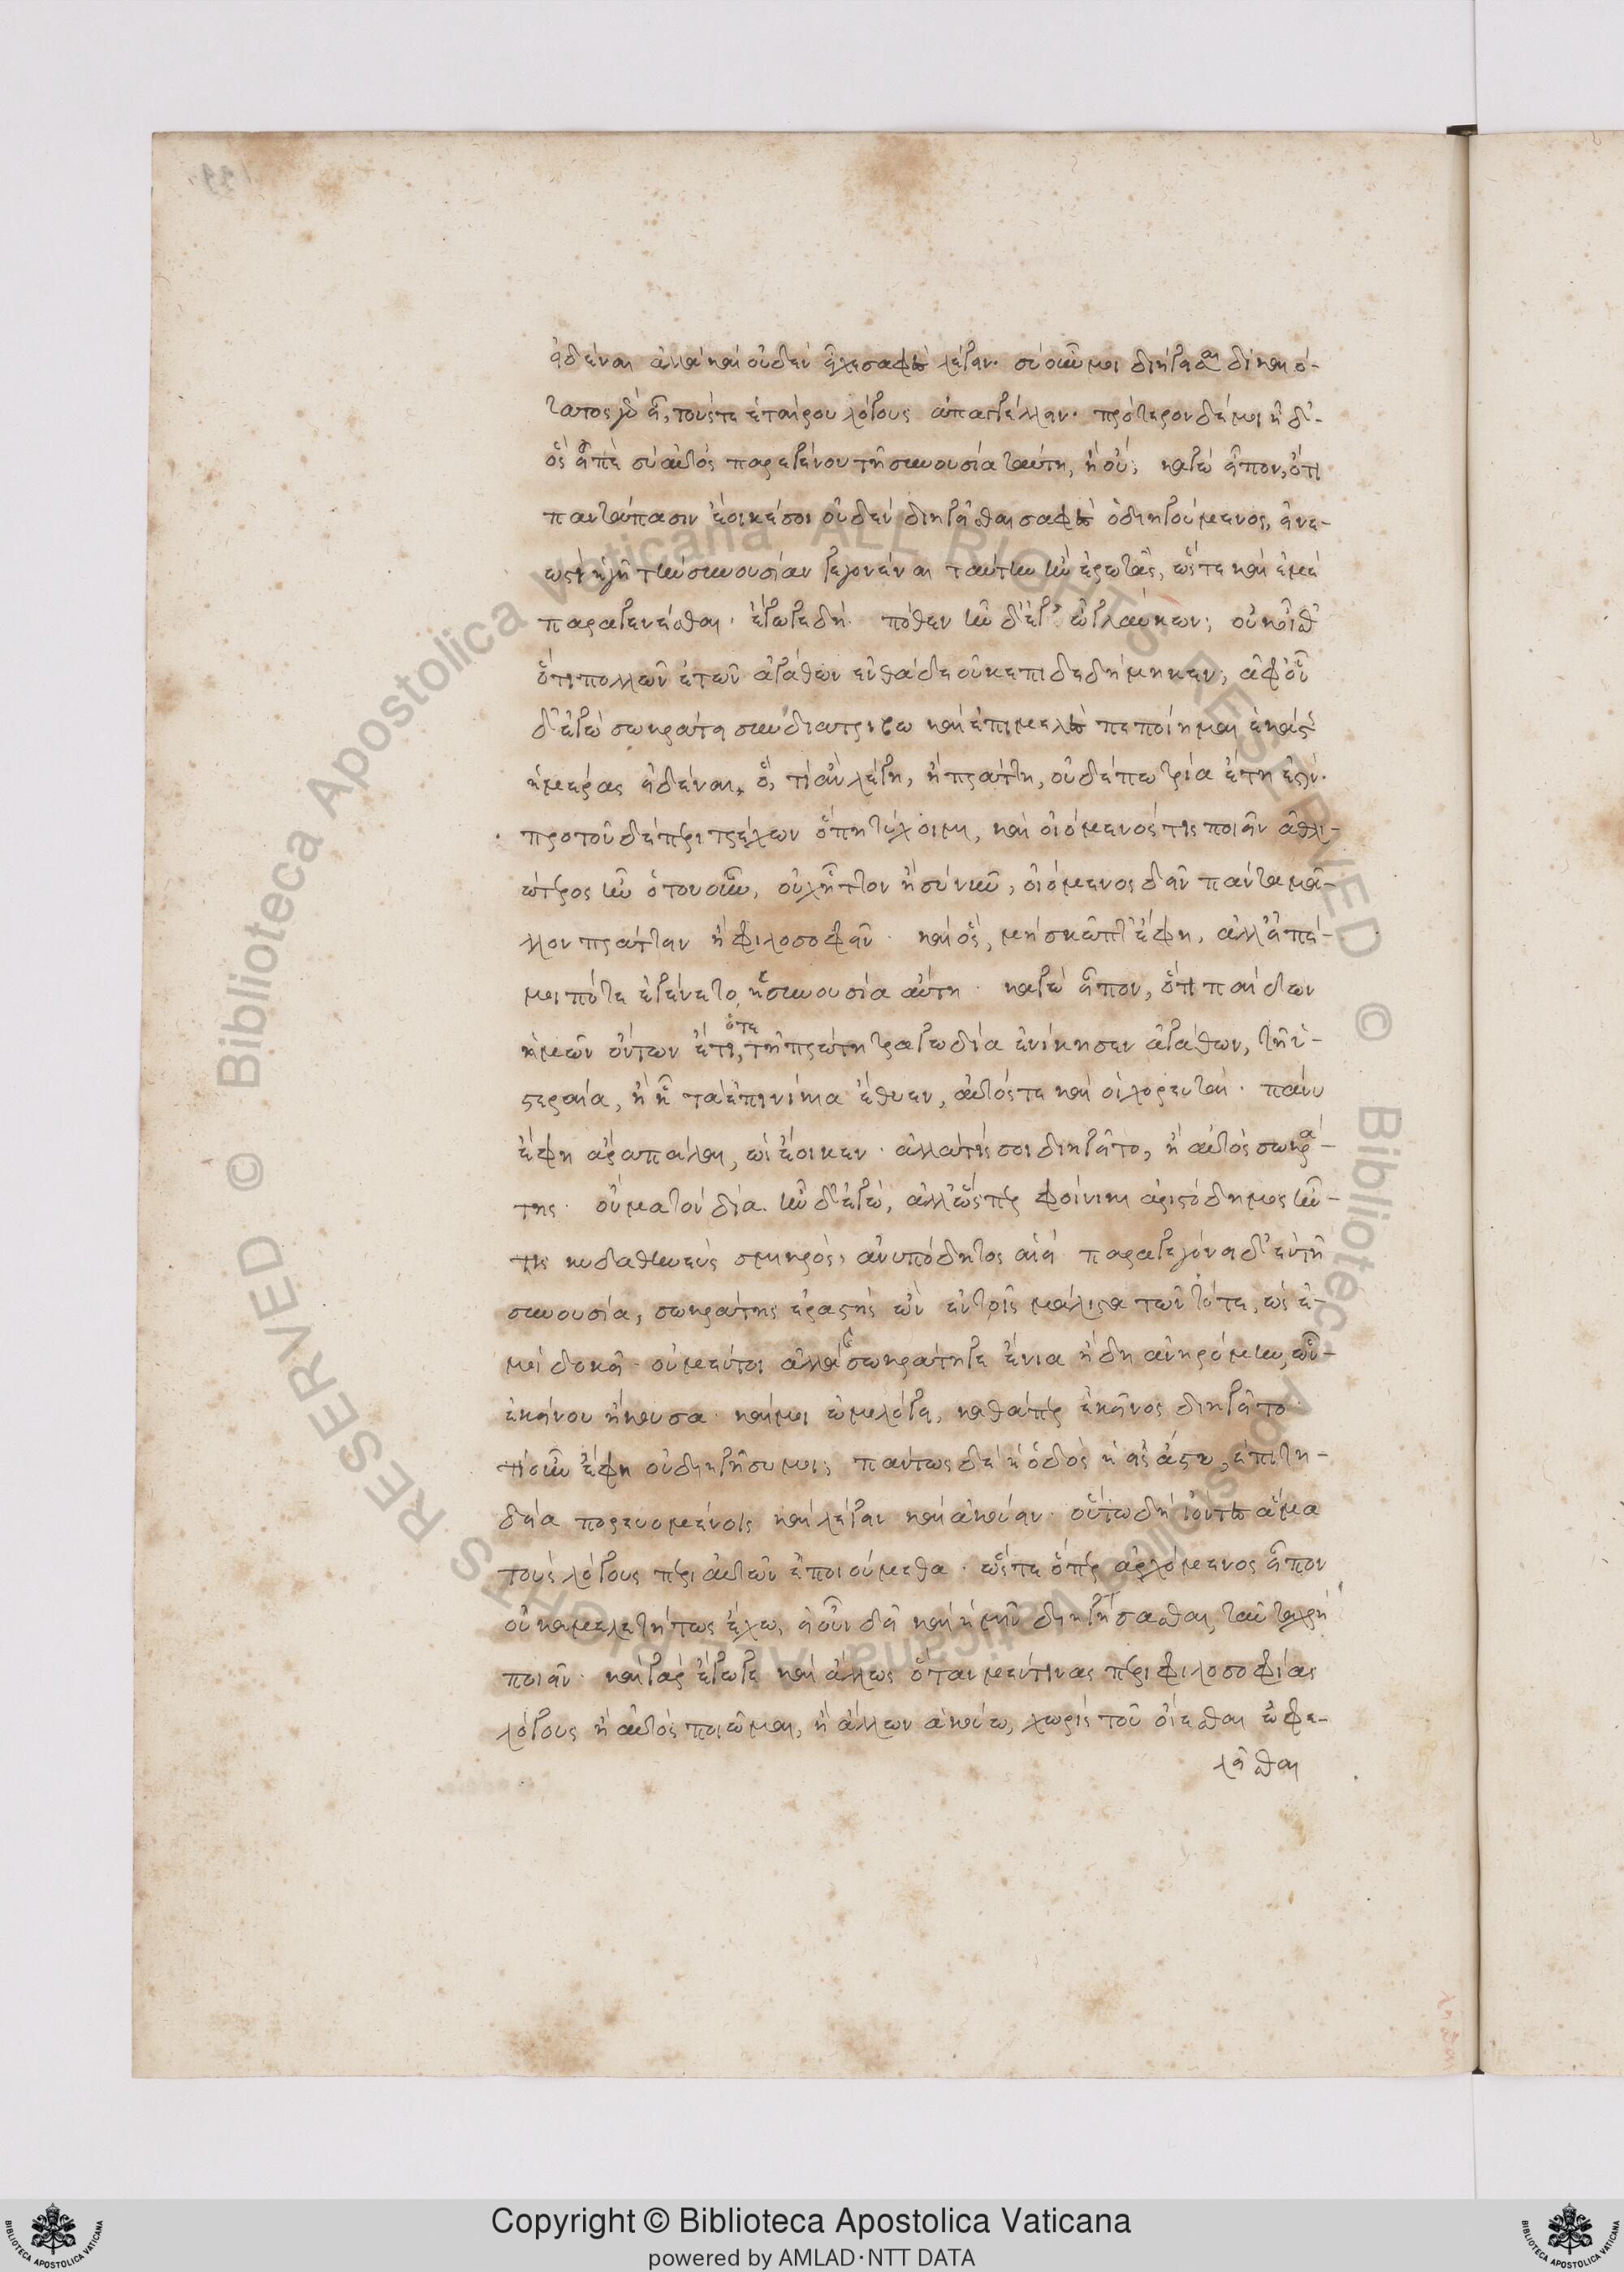 εἰδέναι ἀλλὰ καὶ οὐδὲν εἶχε σαφὲς λέγειν. σὺ οὖν μοι διήγησαι δικαιό-
τατος γὰρ εἶ, τοὺς τε ἑταίρου λόγους ἀπαγγέλλειν. πρότερον δέ μοι ἦ δ'
ὃς εἶπὲ σὺ αὐτὸς παρεγένου τῇ συνουσία ταύτη, ἢ οὔ; καγὼ εἶπον, ὅτι
παντάπασιν ἔοικέ σοι οὐδὲν διηγεῖσθαι σαφὲς ὁ διηγούμενος, εἰ νε-
ωστὶ ἡγῆ τὴν συνουσίαν γεγονέναι ταύτην ἣν ἐρωτᾶς, ὥστε καὶ ἐμὲ
παραγενέσθαι. ἔγωγε δή. πόθεν ἦν δ' ἐγὼ ὦ γλαύκων; οὐκ οἶσθ'
ὅτι πολλῶν ἐτῶν ἀγάθων ἐνθάδε οὐκ ἐπιδεδήμηκεν; ἀφ' οὗ
δ' ἐγὼ σωκράτει συνδιατρίβω καὶ ἐπιμελὲς πεποίημαι ἑκάστης
ἡμέρας εἰδέναι, ὅ, τι ἂν λέγη, ἢ πράττη, οὐδέπω τρία ἔτη ἐστίν.
προτοῦ δὲ περιτρέχων ὅπη τύχοιμι, καὶ οἰόμενός τις ποιεῖν ἀθλι-
ώτερος ἦν ὁτουοῦν, οὐχ ἧττον ἢ σὺ νυνῖ, οἰόμενος δεῖν πάντα μᾶ-
λλον πράττειν ἢ φιλοσοφεῖν. καὶ ὅς, μὴ σκῶπτ' ἔφη, ἀλλ' εἰπέ
μοι πότε ἐγένετο ἡ συνουσία αὕτη. καγὼ εἶπον, ὅτι παίδων
ἡμῶν ὄντων ἔτι, ὅτε τῇ πρώτη τραγωδία ἐνίκησεν ἀγάθων, τῇ ὑ-
στεραία, ἢ ᾗ τὰ ἐπινίκια ἔθυεν, αὐτός τε καὶ οἱ χορευταί. πάνυ
ἔφη ἄρα πάλαι, ὡς ἔοικεν. ἀλλὰ τίς σοι διηγεῖτο, ἢ αὐτὸς σωκρά-
της. οὐ μα τὸν δία. ἦν δ' ἐγώ, ἀλλ' ὥσπερ φοίνικι ἀριστόδημος ἦν
τις κυδαθηνεὺς σμικρὸς, ἀνυπόδητος αἰεί παραγεγόνει δ' ἐν τῇ
συνουσία, σωκράτης ἐραστὴς ὢν ἐν τοῖς μάλιστα τῶν τότε, ὡς ἐ-
μοὶ δοκεῖ. οὐ μέντοι ἀλλὰ σωκράτη γε ἔνια ἤδη ἀνηρόμην, ὧν
ἐκείνου ἤκουσα. καί μοι ὡμολόγει, καθάπερ ἐκεῖνος διηγεῖτο.
τί οὖν ἔφη οὐ διηγήσω μοι; πάντως δὲ ἡ ὁδὸς ἡ εἰς ἄστυ, ἐπιτη-
δεία πορευομένοις καὶ λέγειν καὶ ἀκούειν. οὕτω δὴ ἰόντες ἅμα
τοὺς λόγους περι αὐτῶν ἐποιούμεθα. ὥστε ὅπερ ἀρχόμενος εἶπον
οὐκ ἀμελετήτως ἔχω, εἰ οὖν δεῖ καὶ ἡμῖν διηγήσασθαι, ταῦτα χρὴ
ποιεῖν. καὶ γὰρ ἔγωγε καὶ ἄλλως ὅταν μέν τινας περι φιλοσοφίας
λόγους ἢ αὐτὸς ποιῶμαι, ἢ ἄλλων ἀκούω, χωρὶς τοῦ οἴεσθαι ὠφε-
λεῖσθαι
Copyright © Biblioteca Apostolica Vaticana
powered by AMLAD·NTT DATA